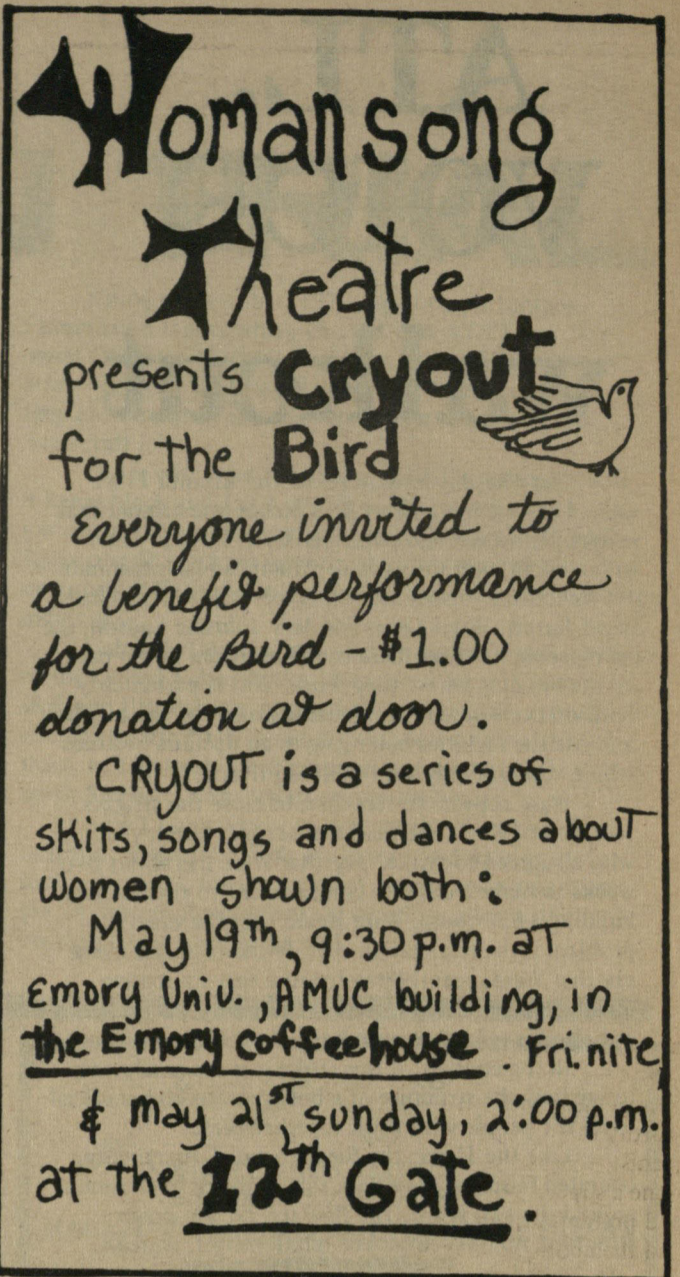 Womansong
Theatre
presents Cryout
for the Bird
Everyone invited to
a benefit performance
for the Bird - $1.00
donation at door.
CRYOUT is a series of
skits, songs and dances about
women shown both:
May 19th, 9:30 p.m. at
Emory Univ., AMUC building, in
the Emory coffeehouse. Fri. nite
& may 21st, sunday, 2:00 p.m.
at the 12th Gate.